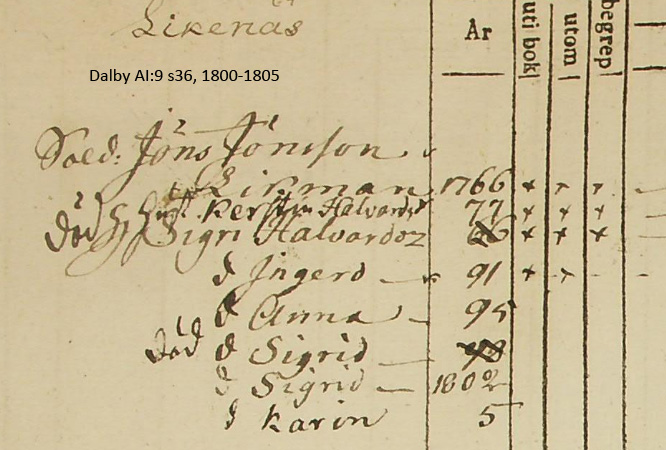 Likenäs
År
uti bok
utom
begrep
Dalby AI:9 s36, 1800-1805
Sold: Jöns Jönsson
Likman 1766
Hust. Kerstin Halvardsd 77
död Sigri Halvardz
d Ingerd 91
d Anna 95
död d Sigrid
d Sigrid 1802
d Karin 5